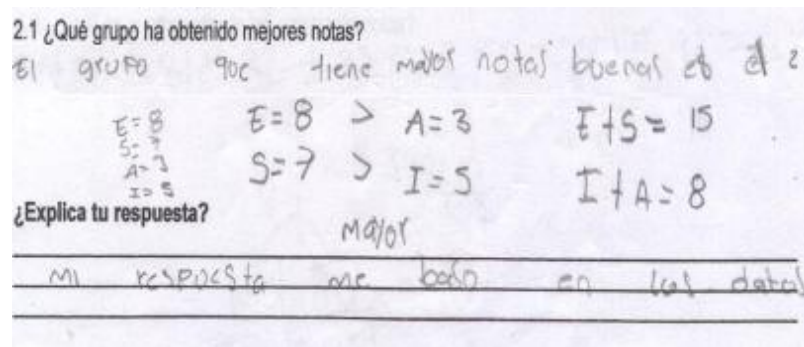 2.1 ¿Qué grupo ha obtenido mejores notas?
El grupo que tiene mayor notas buenas es el 2
E=8 E=8 > A=3 E+S= 15
S=7
A=3 S=7 > I=5 I+A=8
I=5
¿Explica tu respuesta?
mayor
mi respuesta me baso en los datos